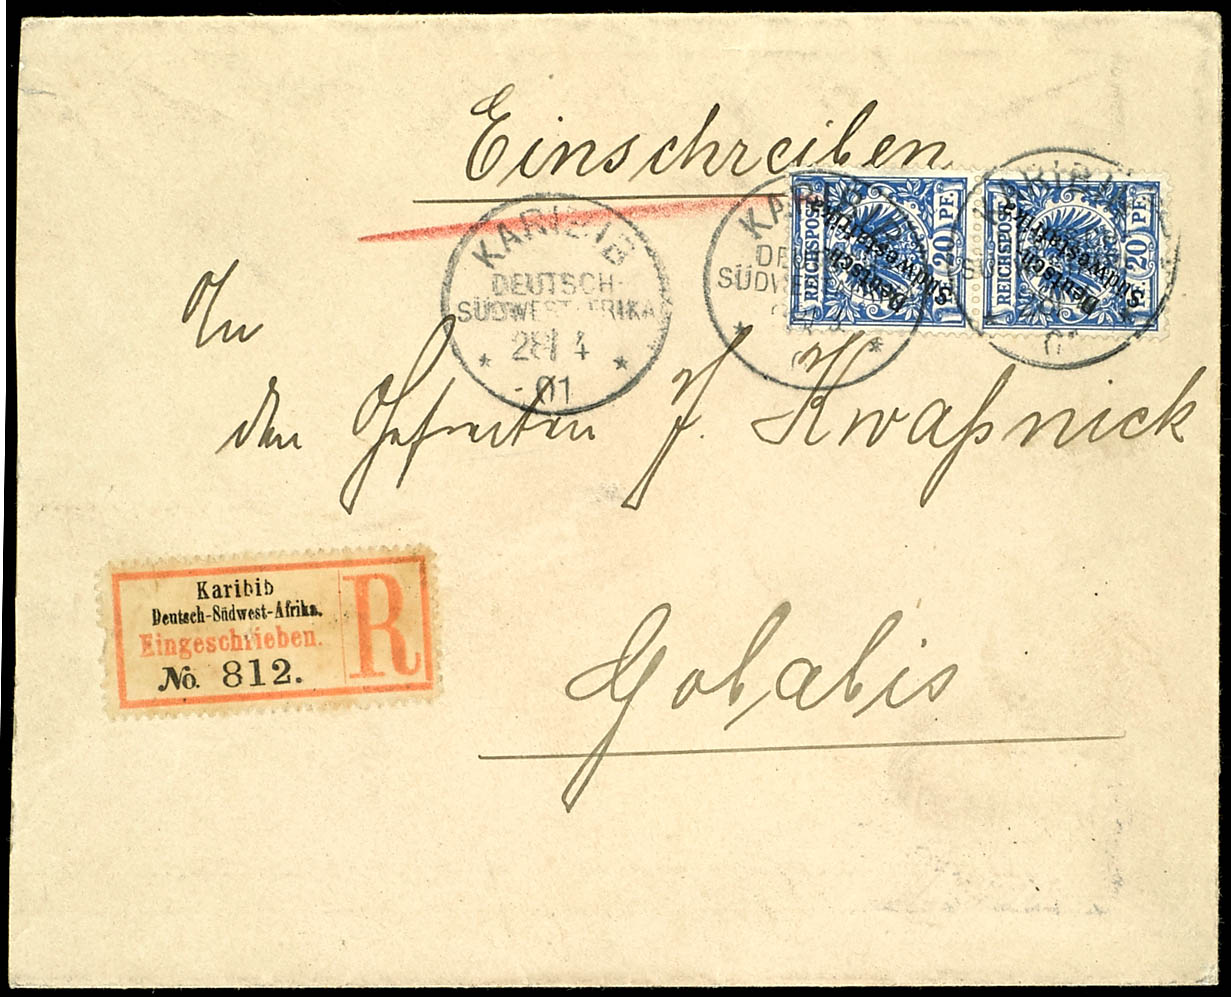 Einschreiben
KARIBIB
DEUTSCH-
SÜDWESTAFRIKA
28/4
01
KARIBIB
SÜDW
REICHSPOST
20 PF.
Deutsch-
Südwestafrika
KARIBIB
REICHSPOST
20 PF.
Deutsch-
Südwestafrika
An
den Gefreiten J. Kwaßnick
Karibib
Deutsch-Südwest-Afrika.
Eingeschrieben.
No. 812.
R
Gobabis